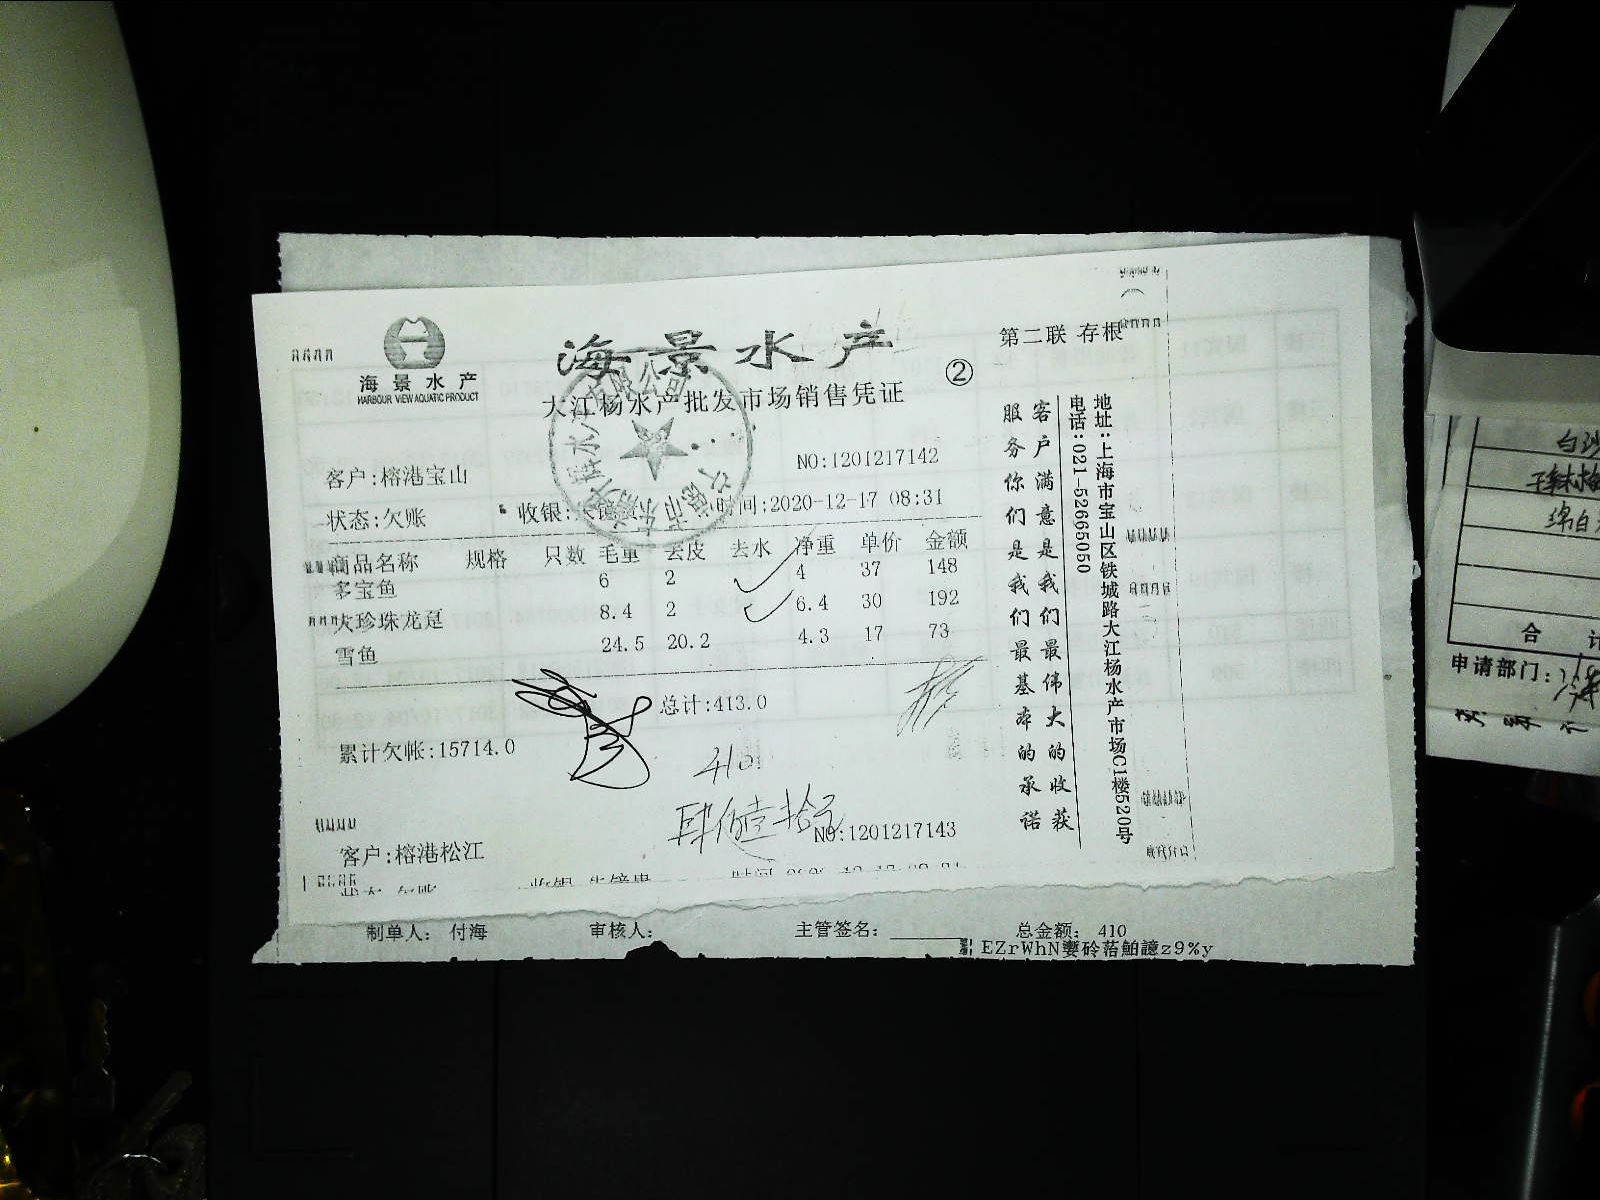 海景水产
HARBOUR VIEW AQUATIC PRODUCT
海景水产
大江杨水产批发市场销售凭证
②
第二联 存根
NO:1201217142
客户:榕港宝山
状态:欠账 收银: 时间:2020-12-17 08:31
商品名称 规格 只数 毛重 去皮 去水 净重 单价 金额
多宝鱼 6 2 4 37 148
大珍珠龙趸 8.4 2 6.4 30 192
雪鱼 24.5 20.2 4.3 17 73
总计:413.0
累计欠帐:15714.0
410
肆佰壹拾元
NO:1201217143
客户:榕港松江
客户满意是我们最伟大的收获
服务你们是我们最基本的承诺
地址:上海市宝山区铁城路大江杨水产市场C1楼520号
电话:021-52665050
制单人: 付海 审核人: 主管签名: 总金额: 410
EZrWhN
z9%y
白沙
绵白
合 计
申请部门: